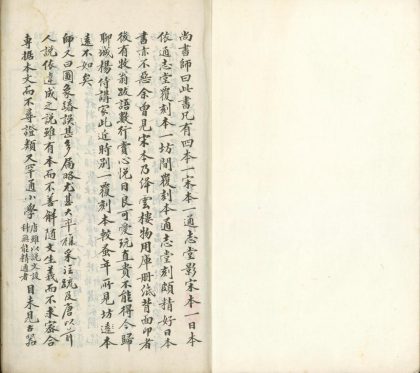 尚書師曰此書凡有四本一宋本一通志堂影宋本一日本
依通志堂覆刻本一坊間覆刻本通志堂刻頗精好日本
書亦不惡余曾見宋本乃絳雲樓物用庫冊紙背面印者
後有牧翁跋語數行賞心悅目良可愛玩直貴不能得今歸
聊城楊侍講家此近時別一覆刻本較蚤年所見坊達本
遠不如矣
師又曰圖象繆誤甚多漏略尤甚大率雜采注疏及唐以前
人說依違成之說雖有本而不善解隨文生義而不求審合
專據本文而不尋證類又罕通小學唐雖以說文設科無能精通者目未見古器